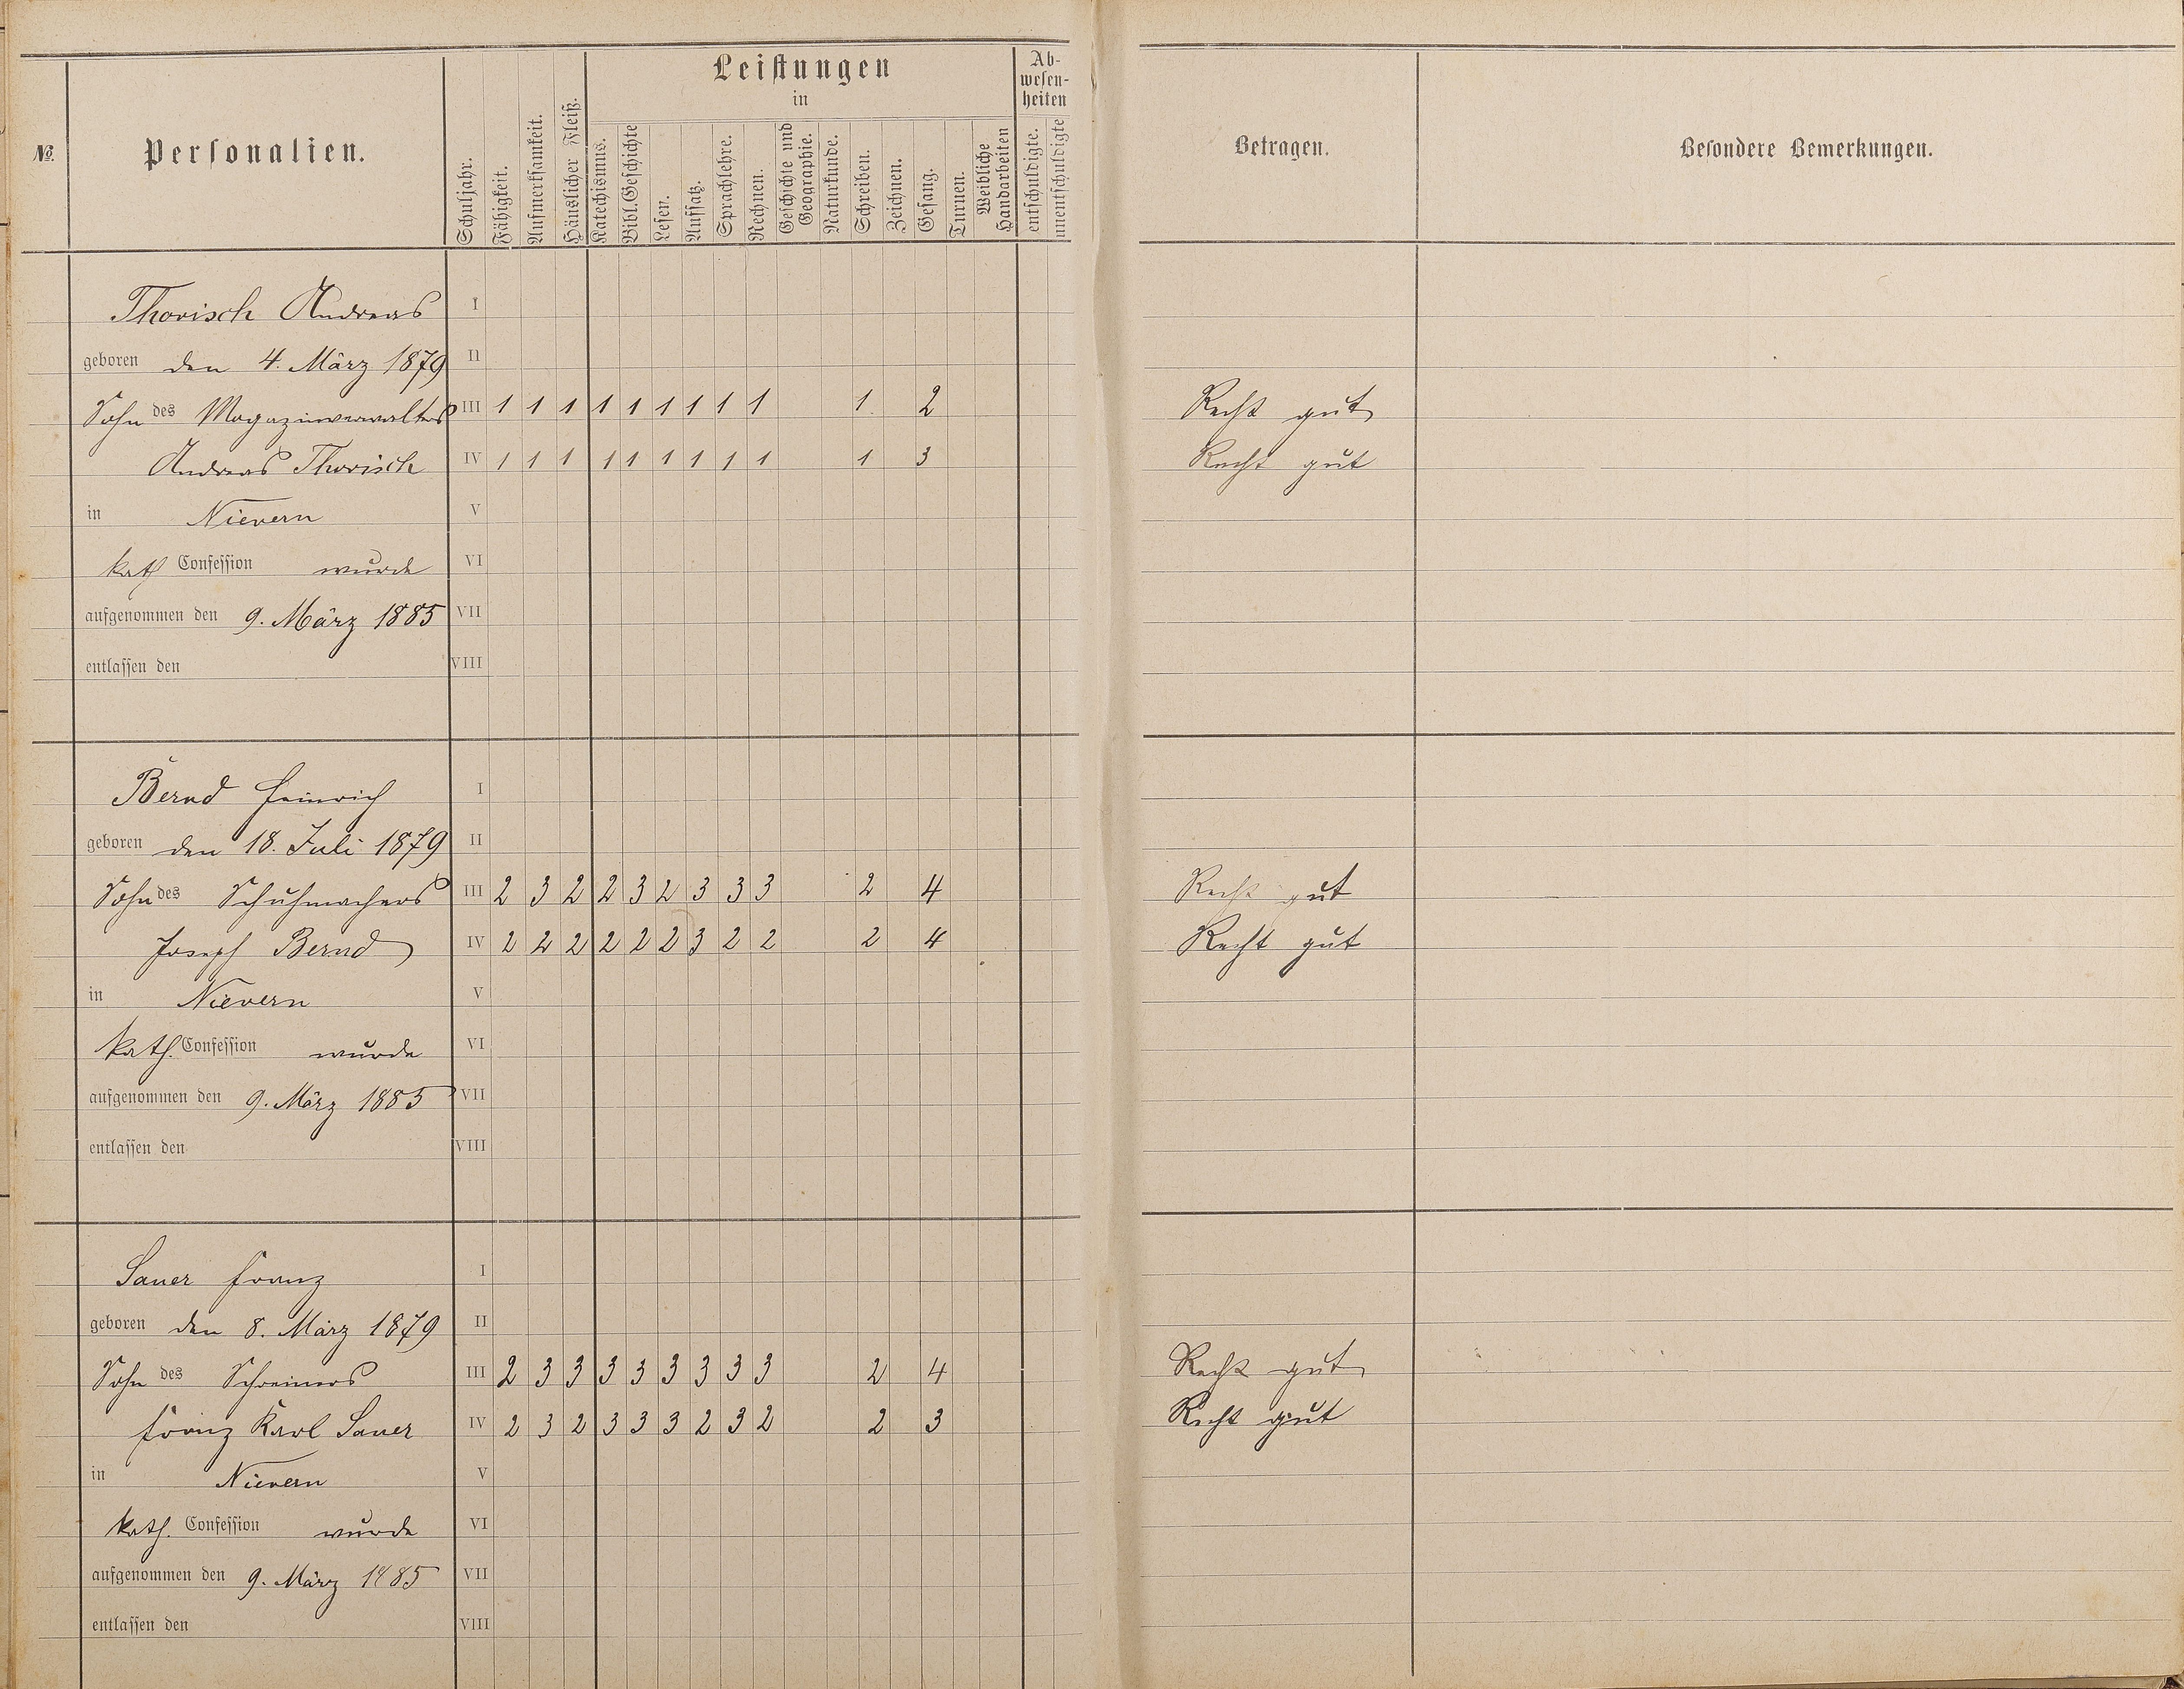 №.
Personalien.
Schuljahr.
Fähigkeit.
Aufmerksamkeit.
Häuslicher Fleiß.
Leistungen
in
Katechismus.
Bibl. Geschichte
Lesen.
Aufsatz.
Sprachlehre.
Rechnen.
Geschichte und
Geographie.
Naturkunde.
Schreiben.
Zeichnen.
Gesang.
Turnen.
Weibliche
Handarbeiten
Ab-
wesen-
heiten
entschuldigte.
unentschuldigte
Betragen.
Besondere Bemerkungen.
Thorisch Andreas I
geboren den 4. März 1879 II
Sohn des Magazinverwalters III 1 1 1 1 1 1 1 1 1 1 2 Recht gut
Andreas Thorisch IV 1 1 1 1 1 1 1 1 1 1 3 Recht gut
in Nievern V
kath Confession wurde VI
aufgenommen den 9. März 1885 VII
entlassen den VIII
Bernd Heinrich I
geboren den 18. Juli 1879 II
Sohn des Schuhmachers III 2 3 2 2 3 2 3 3 3 2 4 Recht gut
Joseph Bernd IV 2 2 2 2 2 2 3 2 2 2 4 Recht gut
in Nievern V
kath. Confession wurde VI
aufgenommen den 9. März 1885 VII
entlassen den VIII
Sauer Franz I
geboren den 8. März 1879 II
Sohn des Schreiners III 2 3 3 3 3 3 3 3 3 2 4 Recht gut
Franz Karl Sauer IV 2 3 2 3 3 3 2 3 2 2 3 Recht gut
in Nievern V
kath. Confession wurde VI
aufgenommen den 9. März 1885 VII
entlassen den VIII